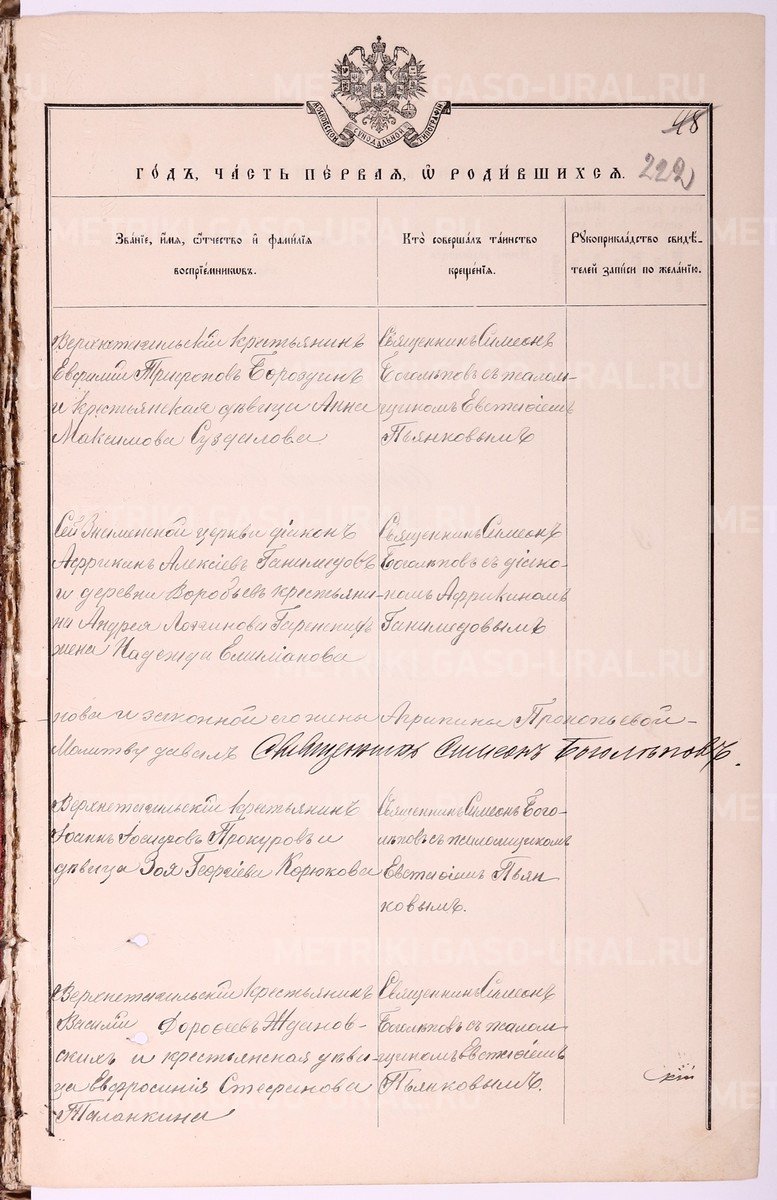 МОСКОВСКОЙ СѴНОДАЛЬНОЙ ТИПОГРАФІИ
48
ГО́ДЪ, ЧА́СТЬ ПЕ́РВАЯ, Ѡ҆ РОДИ́ВШИХСЯ.
222
Зва́нїе, и҆́мя, ѻ҆́тчество и҆ фами́лїя
воспрїе́мниковъ.
Кто̀ соверша́лъ та́инство
креще́нїя.
Рукоприкла́дство свидѣ́-
телей за́писи по жела́нїю.
Верхнетагильскій крестьянинъ
Евфимій Трифоновъ Бороздинъ
и крестьянская дѣвица Анна
Максимова Суздалова
Священникъ Симеонъ
Боголѣповъ съ псалом-
щикомъ Евстаѳіемъ
Пьянковымъ
Сей Знаменской церкви діаконъ
Африканъ Алексіевъ Ганимедовъ
и деревни Воробьевъ крестьяни-
на Андрея Логгинова жена Надежда
Священникъ Симеонъ
Боголѣповъ съ діако-
номъ Африканомъ
Ганимедовымъ
нова и законной его жены Агрипины Прокопьевой
Молитву давалъ Священникъ Симеонъ Боголѣповъ.
Верхнетагильскій крестьянинъ
Іоаннъ Іосифовъ Прокуровъ и
дѣвица Зоя Георгіева Корюкова
Священникъ Симеонъ Бого-
лѣповъ съ псаломщикомъ
Евстаѳіемъ Пьян
ковымъ.
Верхнетагильскій крестьянинъ
Василій Дороѳеевъ Ждановскихъ
и крестьянская дѣви-
ца Евфросинія Стефанова
Таланкина
Священникъ Симеонъ
Боголѣповъ съ псалом
щикомъ Евстаѳіемъ
Пьянковымъ.
скій
METRIKI.GASO-URAL.RU